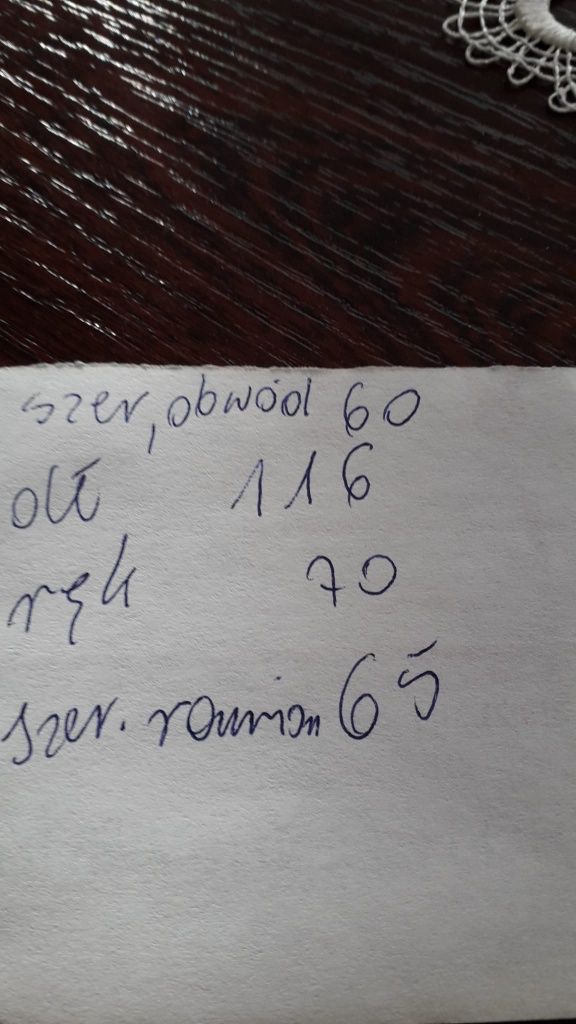 szer, obwód 60
dł 116
ręk 70
szer. ramion 65